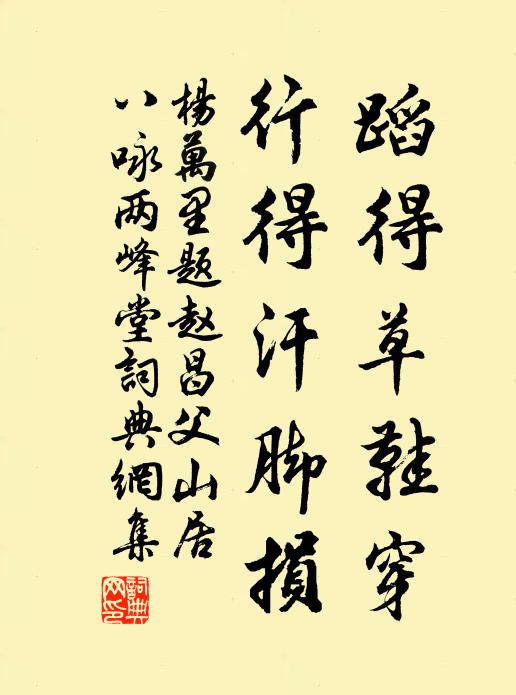 蹈得草鞋穿
行得汗脚損
楊萬里題赵昌父山居
八咏两峰堂詞典網集
詞典
网印